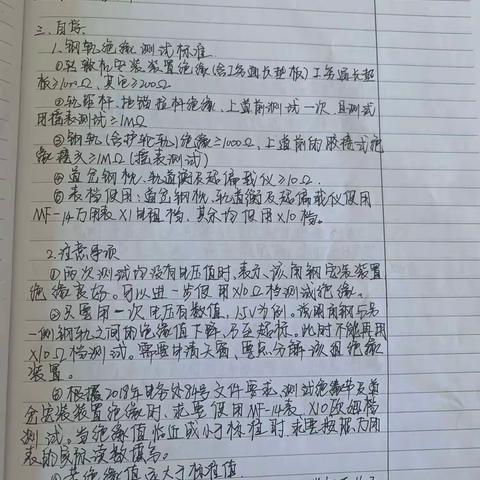 三、目标
1.钢轨绝缘测试标准
①转辙机安装装置绝缘(含工务通长垫板)工务通长垫
板≥100Ω,其它≥200Ω
②轨距杆、地锚拉杆绝缘,上道前测试一次,且测试
用摇表测试≥1MΩ
③钢轨(含护轮轨)绝缘≥1000Ω,上道前的胶接式绝
缘接头≥1MΩ(摇表测试)
④道岔钢枕、轨道衡及超偏载仪≥10Ω.
⑤表档使用:道岔钢枕、轨道衡及超偏载仪使用
MF-14万用表X1电阻档,其余均使用X10档。
2.注意事项
①两次测试均没有电压值时,表示该角钢安装装置
绝缘良好。可以进一步使用X10Ω档测试绝缘。
②只要用一次电压有数值,1.5V为例。说明角钢与另
一侧钢轨之间的绝缘值下降,乃至超标。此时不能再用
X10Ω档测试。需要申请天窗,要点分解该组绝缘
装置。
③根据2018年电务处84号文件要求,测试绝缘单及道
岔安装装置绝缘时,求要使用MF-14表X10欧姆档
测试。当绝缘值临近或小于标准时,求要按照万用
表的实际读数填写。
④若绝缘值远大于标准值